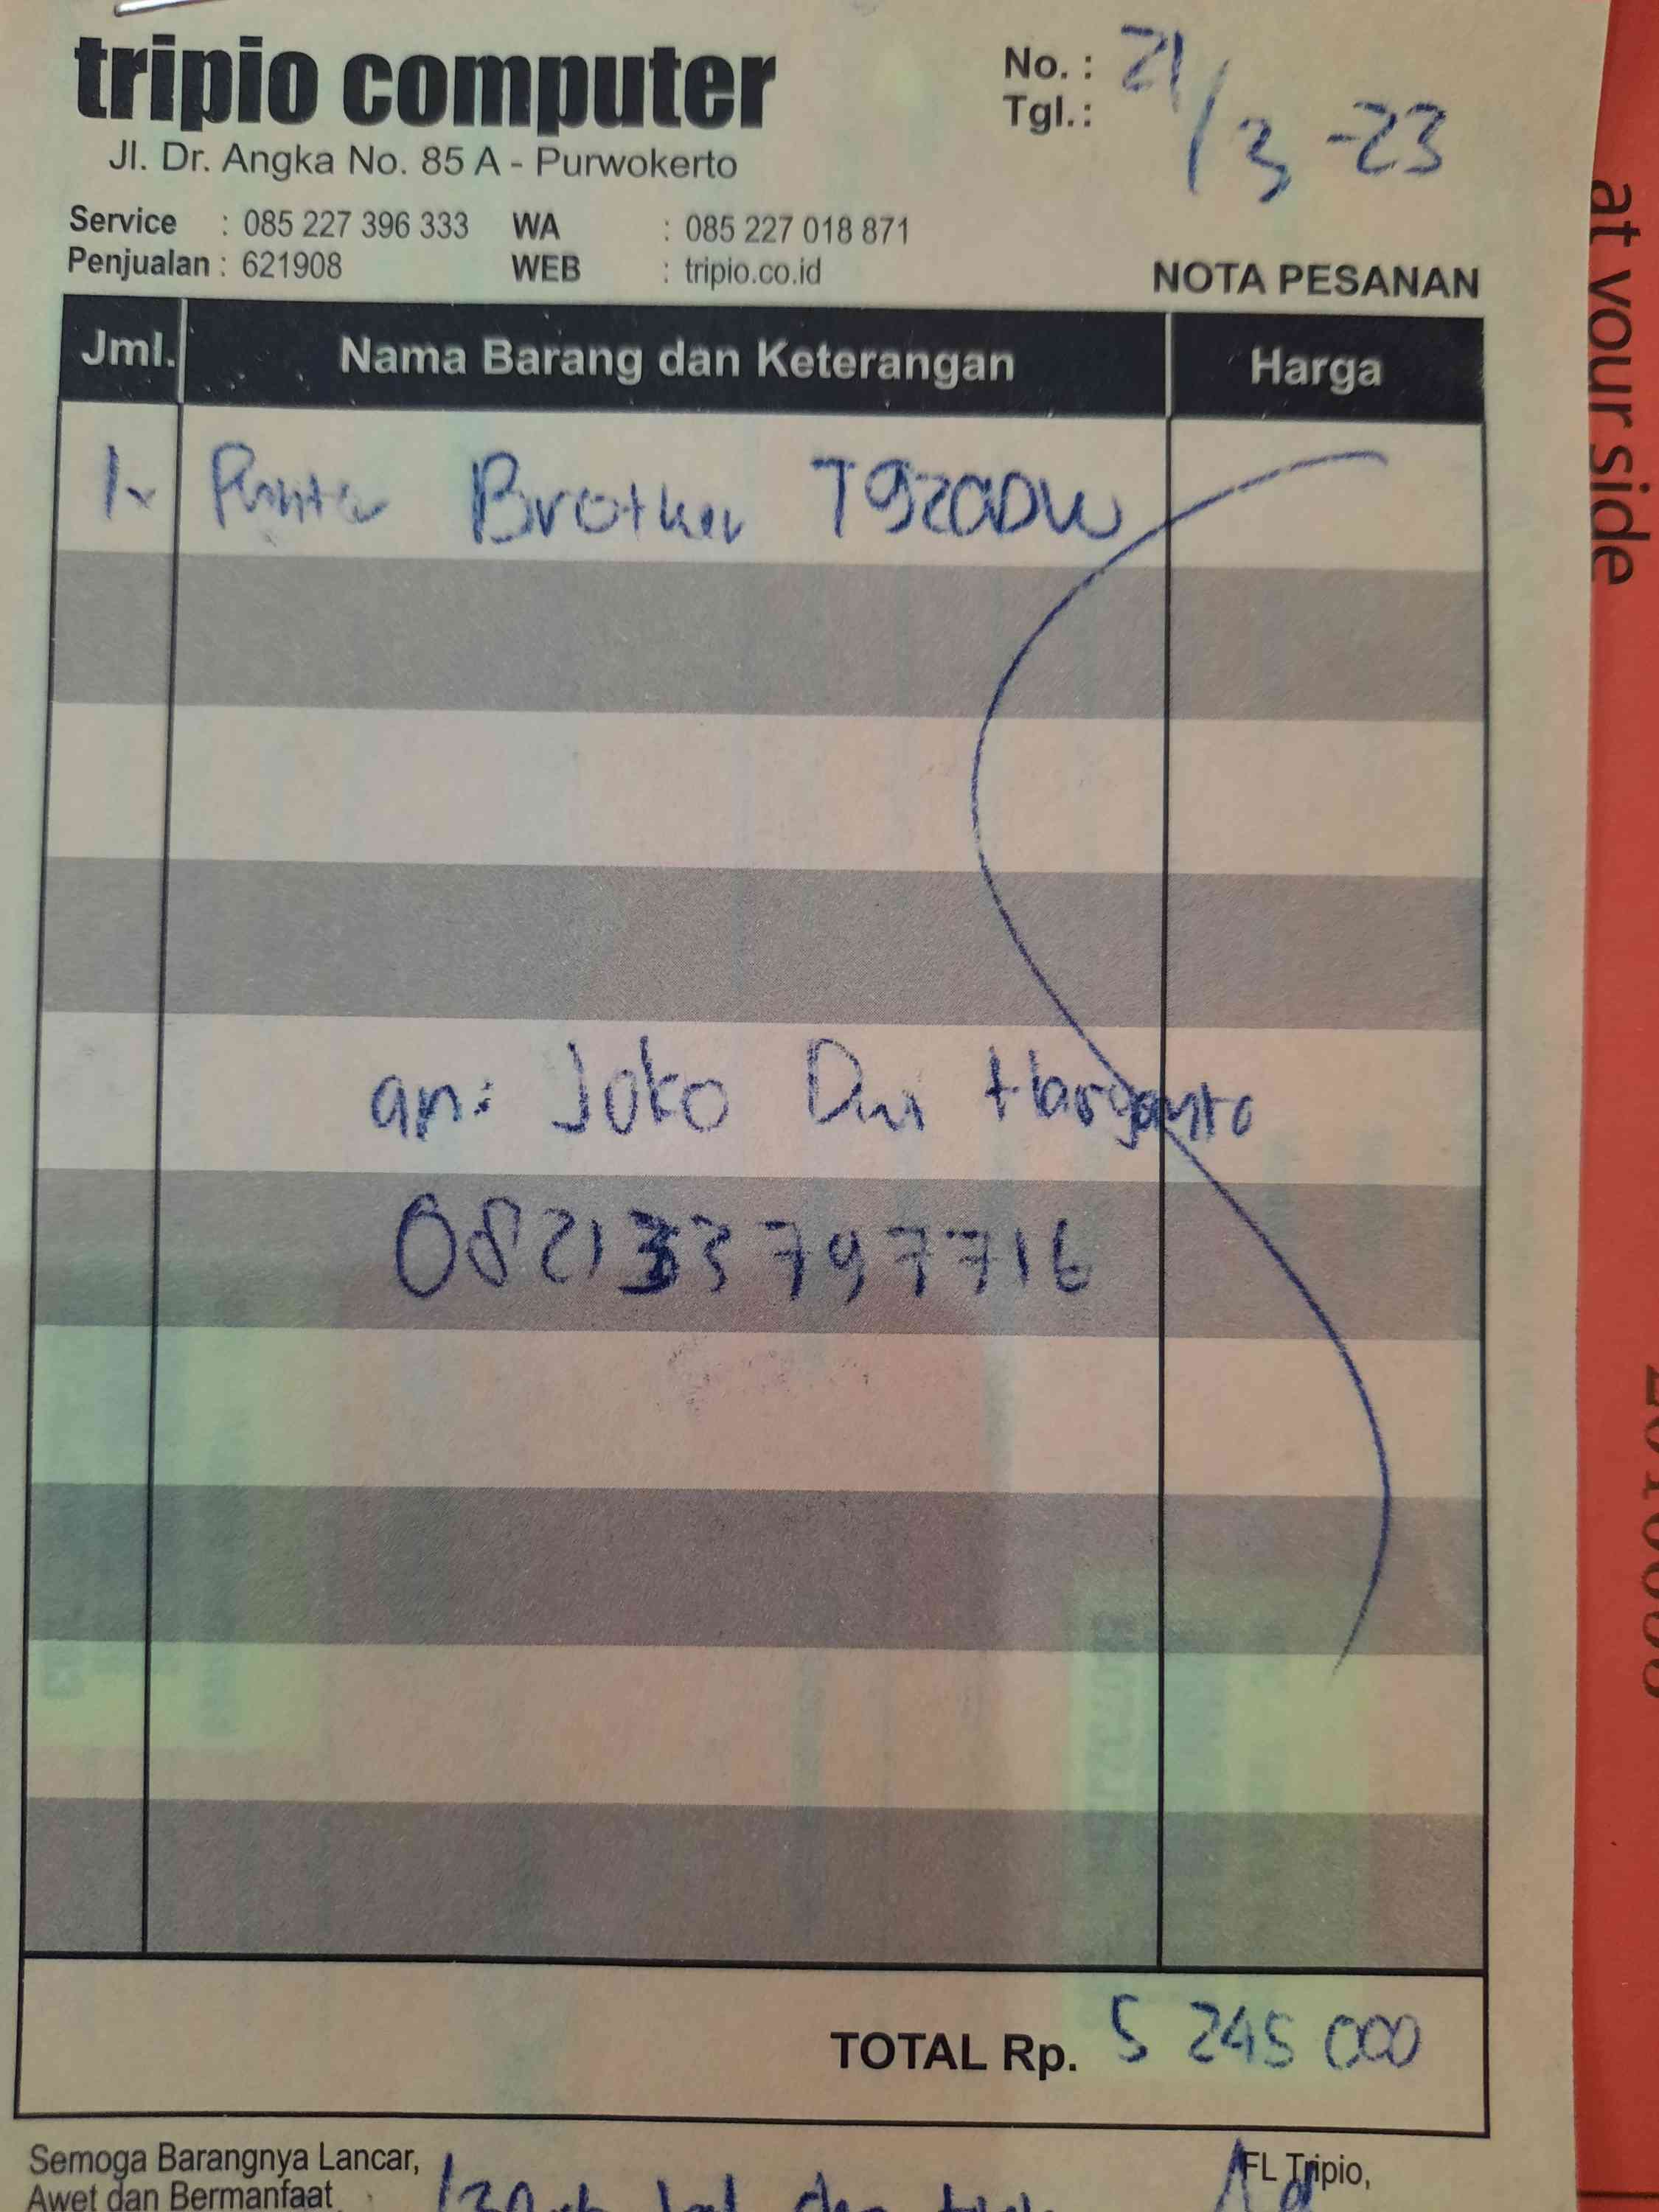 tripio computer
Jl. Dr. Angka No. 85 A - Purwokerto
No. :
Tgl.: 21/3-23
Service : 085 227 396 333 WA : 085 227 018 871
Penjualan : 621908 WEB : tripio.co.id
NOTA PESANAN
Jml. Nama Barang dan Keterangan Harga
1x Printer Brother T920DW
an: Joko Dwi Haryanto
082133797716
TOTAL Rp. 5 245 000
Semoga Barangnya Lancar,
Awet dan Bermanfaat
FL Tripio,
at your side